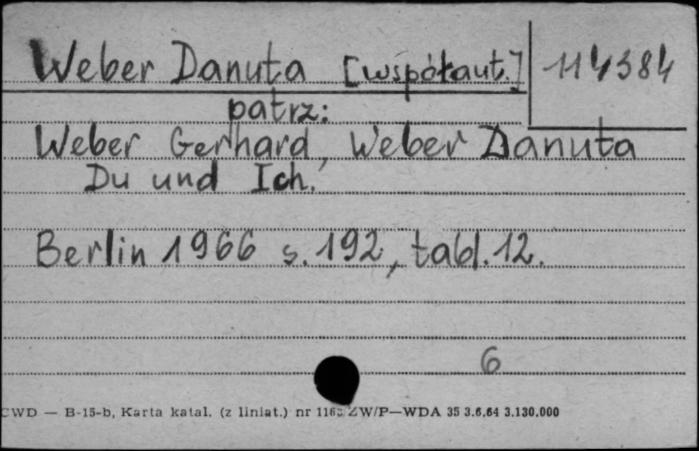 Weber Danuta [współaut.] 114384
patrz:
Weber Gerhard, Weber Danuta
Du und Ich.
Berlin 1966 s. 192, tabl. 12.
6
CWD — B-15-b, Karta katal. (z liniat.) nr ZW/P—WDA 35 3.6.64 3.130.000